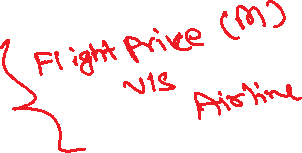 Flight Price (M)
V/S
Airline